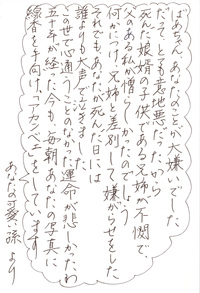 ばあちゃん あなたのことが大嫌いでした
だって、とても意地悪だったから
死んだ娘婿の子供である兄姉が不憫で、
父のある私が憎らしかったのでしょう
何かにつけ兄姉と差別して嫌がらせをした
それでも、あなたが死んだ日には
誰よりも大声で泣きました
この世で心通うことのなかった運命が悲しかったわ
五十年が経った今も毎朝あなたの写真に
線香を手向け「アカンベェ」をしています
あなたの可愛い孫より